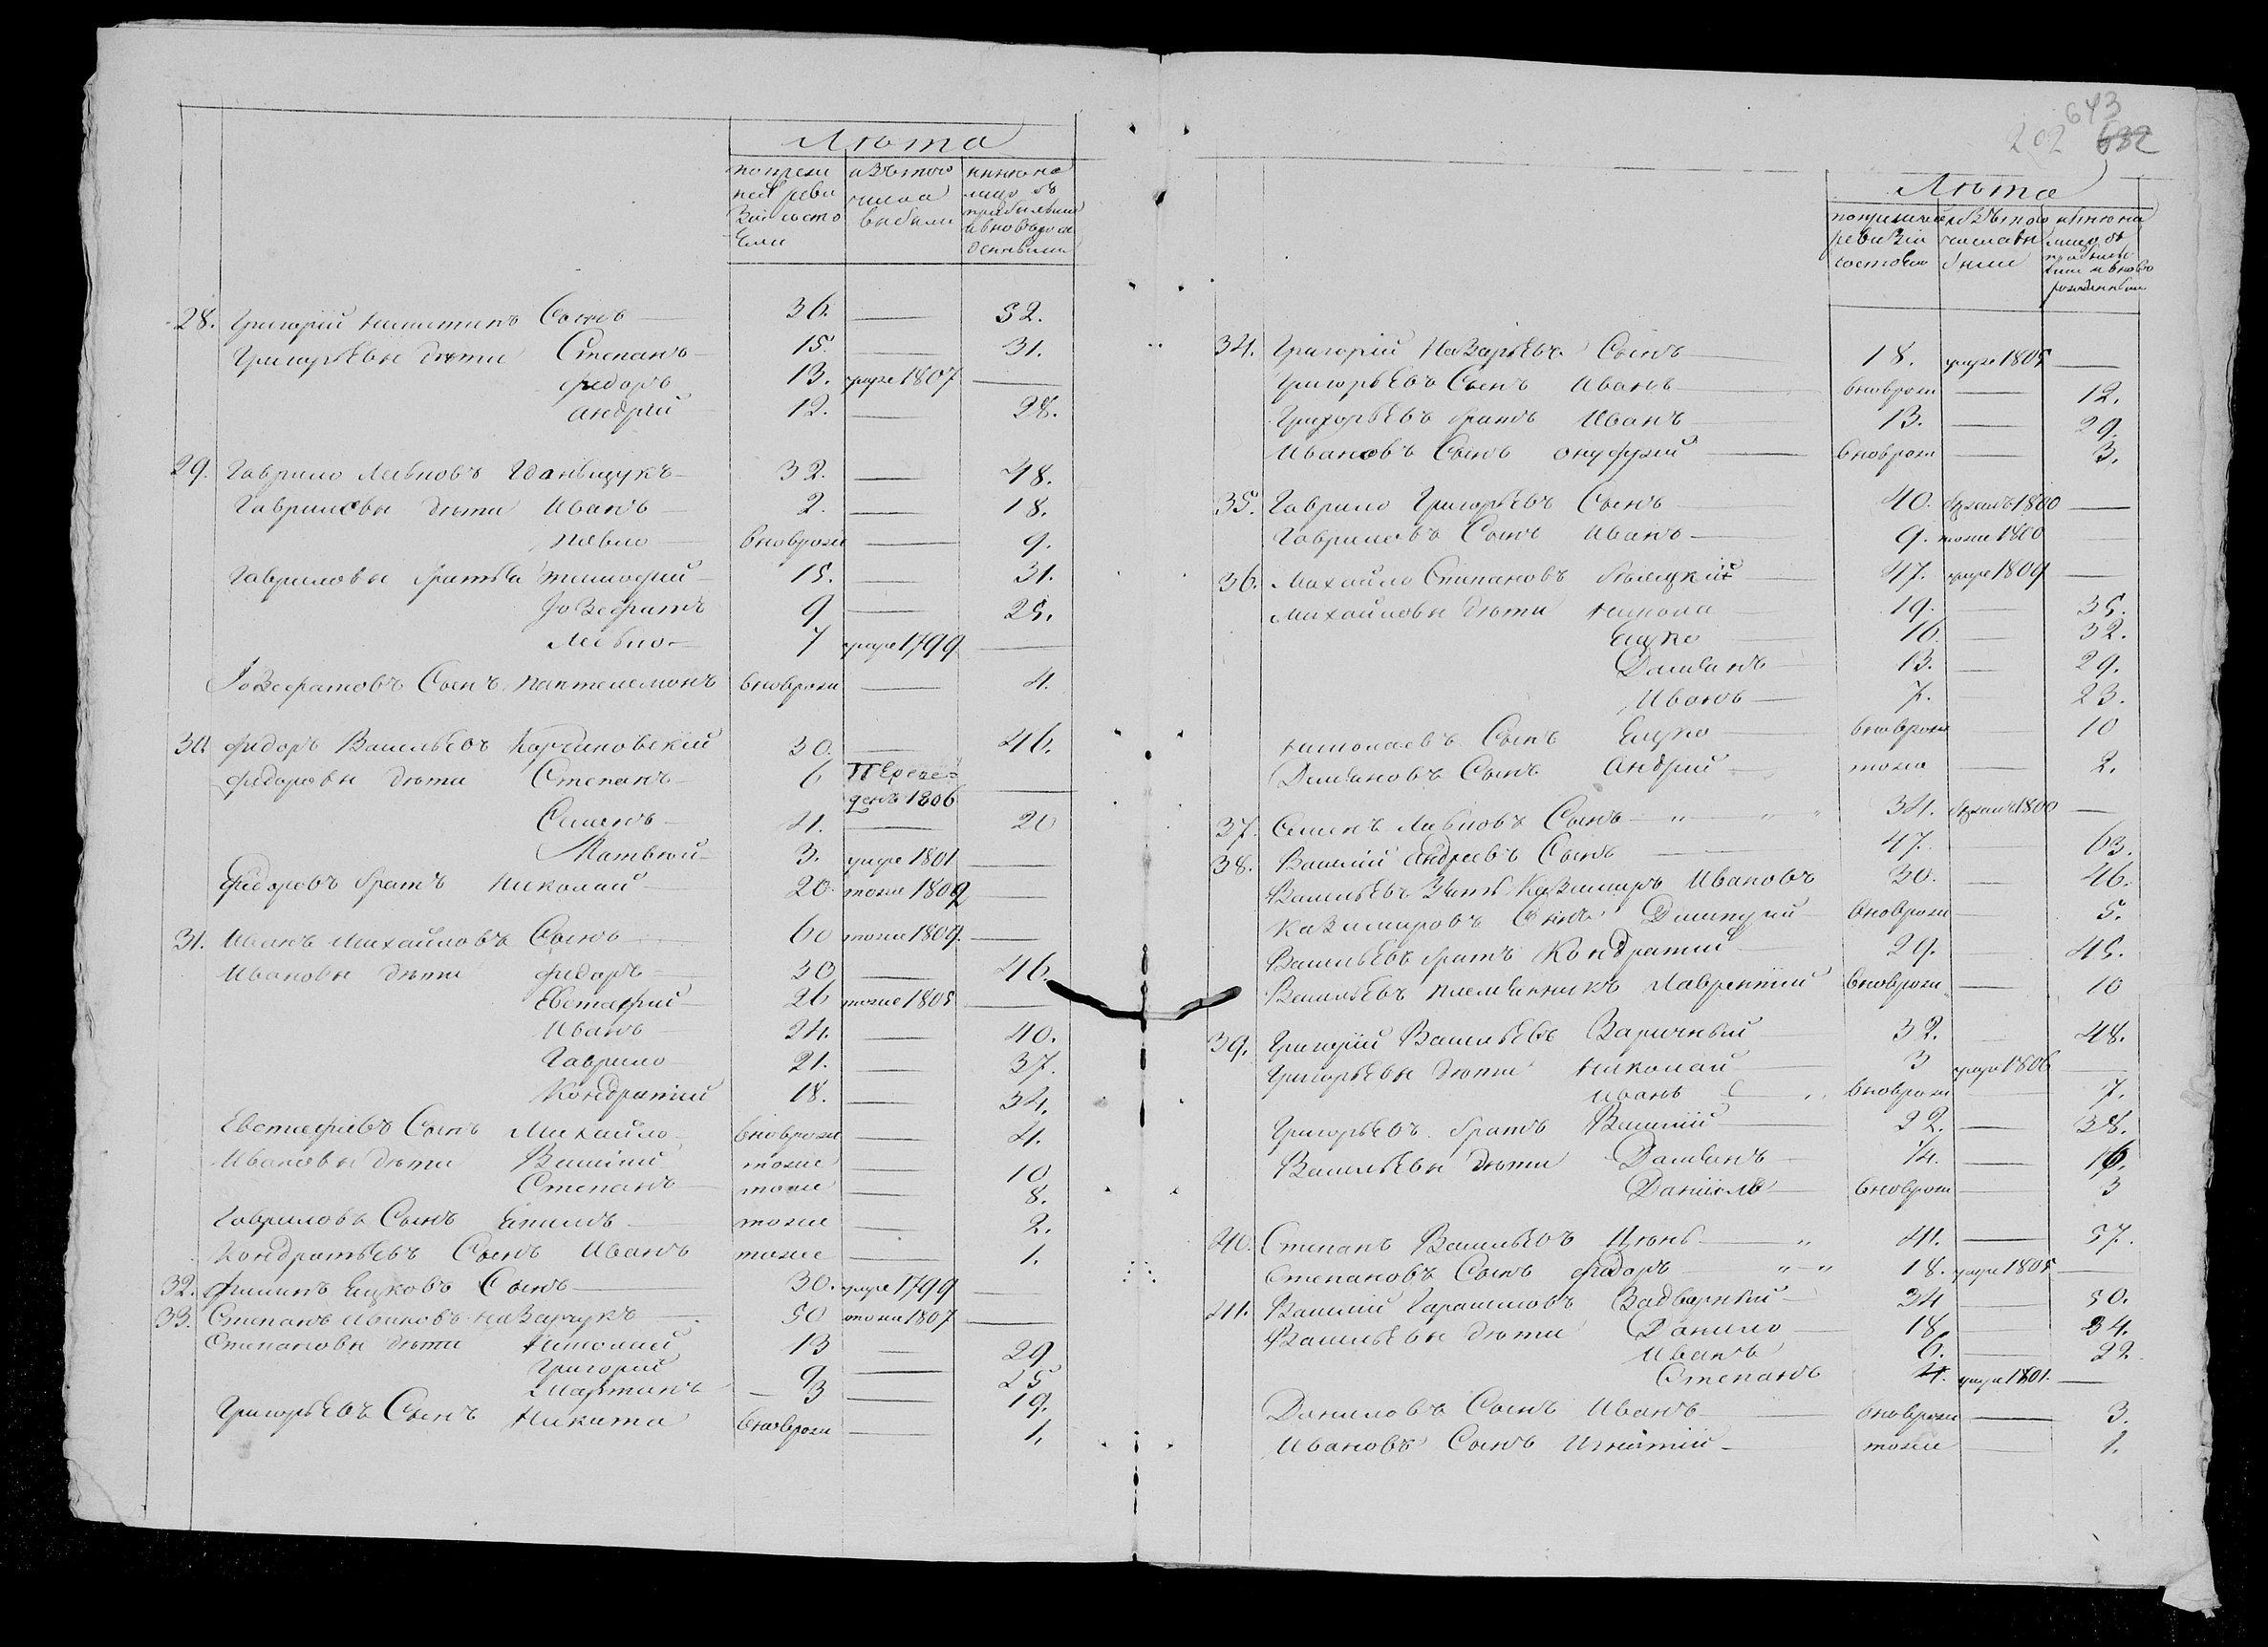 Лѣта
по преж
ней реви
зіи состо
яли
изъ того
числа
выбыли
нынѣ на
лицо съ
прибылыми
и вновьрож
денными
28. Григорій Никитинъ Сынъ — 36. — 52.
Григорьевы дѣти Степанъ — 15. — 31.
Федоръ 13. умре 1807 —
Андрей 12. — 28.
29. Гаврило Левковъ 32. — 48.
Гавриловы дѣти Иванъ — 2. — 18.
Павло — вноврожд — 9.
Гавриловы братья Тимофей 15. — 31.
Іозефатъ 9 — 25.
Левко — 7 умре 1799 —
Іозефатовъ Сынъ Пантелемонъ вноврожд — 4.
30 Федоръ Васильевъ Корчиновскій 30. — 46.
Федоровы дѣти Степанъ 6 Переве-
денъ 1806 —
Семенъ — 4. — 20
Матвѣй 3. умре 1801 —
Федоровъ братъ Николай — 20 тоже 1809 —
31. Иванъ Михайловъ Сынъ 60 тоже 1809. —
Ивановы дѣти Федоръ 30 — 46.
Евстафій 26 тоже 1805 —
Иванъ 24. — 40.
Гаврило 21. — 37.
Кондратій 18. — 34.
Евстафіевъ Сынъ Михайло вноврожд — 4.
Ивановы дѣти Василій тоже — 10
Степанъ тоже — 8.
Гавриловъ Сынъ тоже — 2.
Кондратьевъ Сынъ Иванъ тоже — 1.
32. Филипъ Ецковъ Сынъ — 30. умре 1799 —
33. Степанъ Ивановъ Назарчукъ 50 тоже 1807 —
Степановы дѣти Николай 13 — 29
Григорій 9 — 25
Мартинъ — 3 — 19.
Григорьевъ Сынъ Никита вноврожд — 1.
643
202 632
Лѣта
по прежней
ревизіи
состояли
изъ того
числа вы
были
нынѣ на
лицо съ
прибылы
ми и вново
рожденными
34. Григорій Назарьевъ Сынъ — 18. умре 1805 —
Григорьевъ Сынъ Иванъ — вноврож — 12.
Григорьевъ братъ Иванъ — 13. — 29.
Ивановъ Сынъ Онуфрій — вноврож — 3.
35. Гаврило Григорьевъ Сынъ — 40. 1800 —
Гавриловъ Сынъ Иванъ — 9. тоже 1800
36. Михайло Степановъ 47. умре 1809 —
Михайловы дѣти Никола — 19. — 35.
Ецко — 16 — 32.
Даміянъ — 13. — 29.
Иванъ — 7. — 23.
Николаевъ Сынъ Ецко вноврож — 10
Даміяновъ Сынъ Андрей — тоже — 2.
37. Семенъ Сынъ — " " " 34. 1800 —
38. Василій Андреевъ Сынъ — 47. 63.
Васильевъ Зять Казимиръ Ивановъ 30. — 46.
Казимировъ Сынъ вноврож 5.
Васильевъ братъ Кондратій 29. — 45.
Васильевъ племянникъ Лаврентій вноврож — 10
39. Григорій Васильевъ Заричный 32. 48.
Григорьевы дѣти Николай 3 умре 1806 —
Иванъ вноврож 7.
Григорьевъ братъ Василій 22. — 38.
Васильевы дѣти Даміянъ — 14. — 16.
Даніилъ — вноврож — 3
40. Степанъ Васильевъ — " 41. — 57.
Степановъ Сынъ Федоръ — " — " 18. умре 1805 —
41. Василій Гарасимовъ Задворный 34 — 50.
Васильевы дѣти Данило — 18 — 34.
Иванъ 6. — 22.
Степанъ 4. умре 1801. —
Даниловъ Сынъ Иванъ — вноврож — 3.
Ивановъ Сынъ Игнатій — тоже — 1.